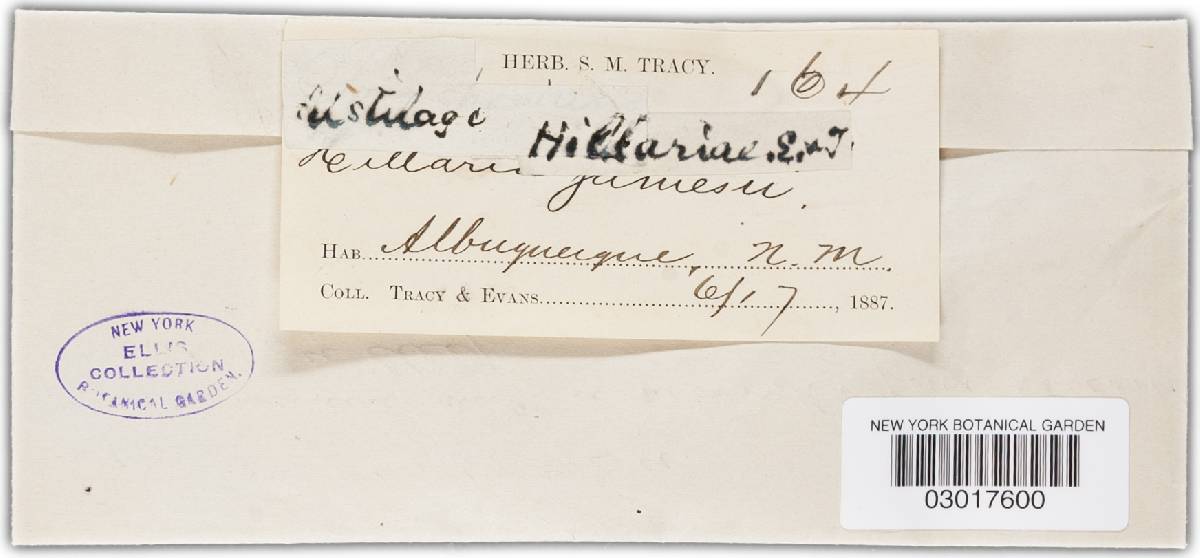 HERB. S. M. TRACY.
164
Ustilago
Hillariae. E. & T.
Hillaria Jamesii.
HAB. Albuquerque, N. M.
COLL. TRACY & EVANS. 6/17, 1887.
NEW YORK
ELLIS
COLLECTION
BOTANICAL GARDEN.
NEW YORK BOTANICAL GARDEN
03017600